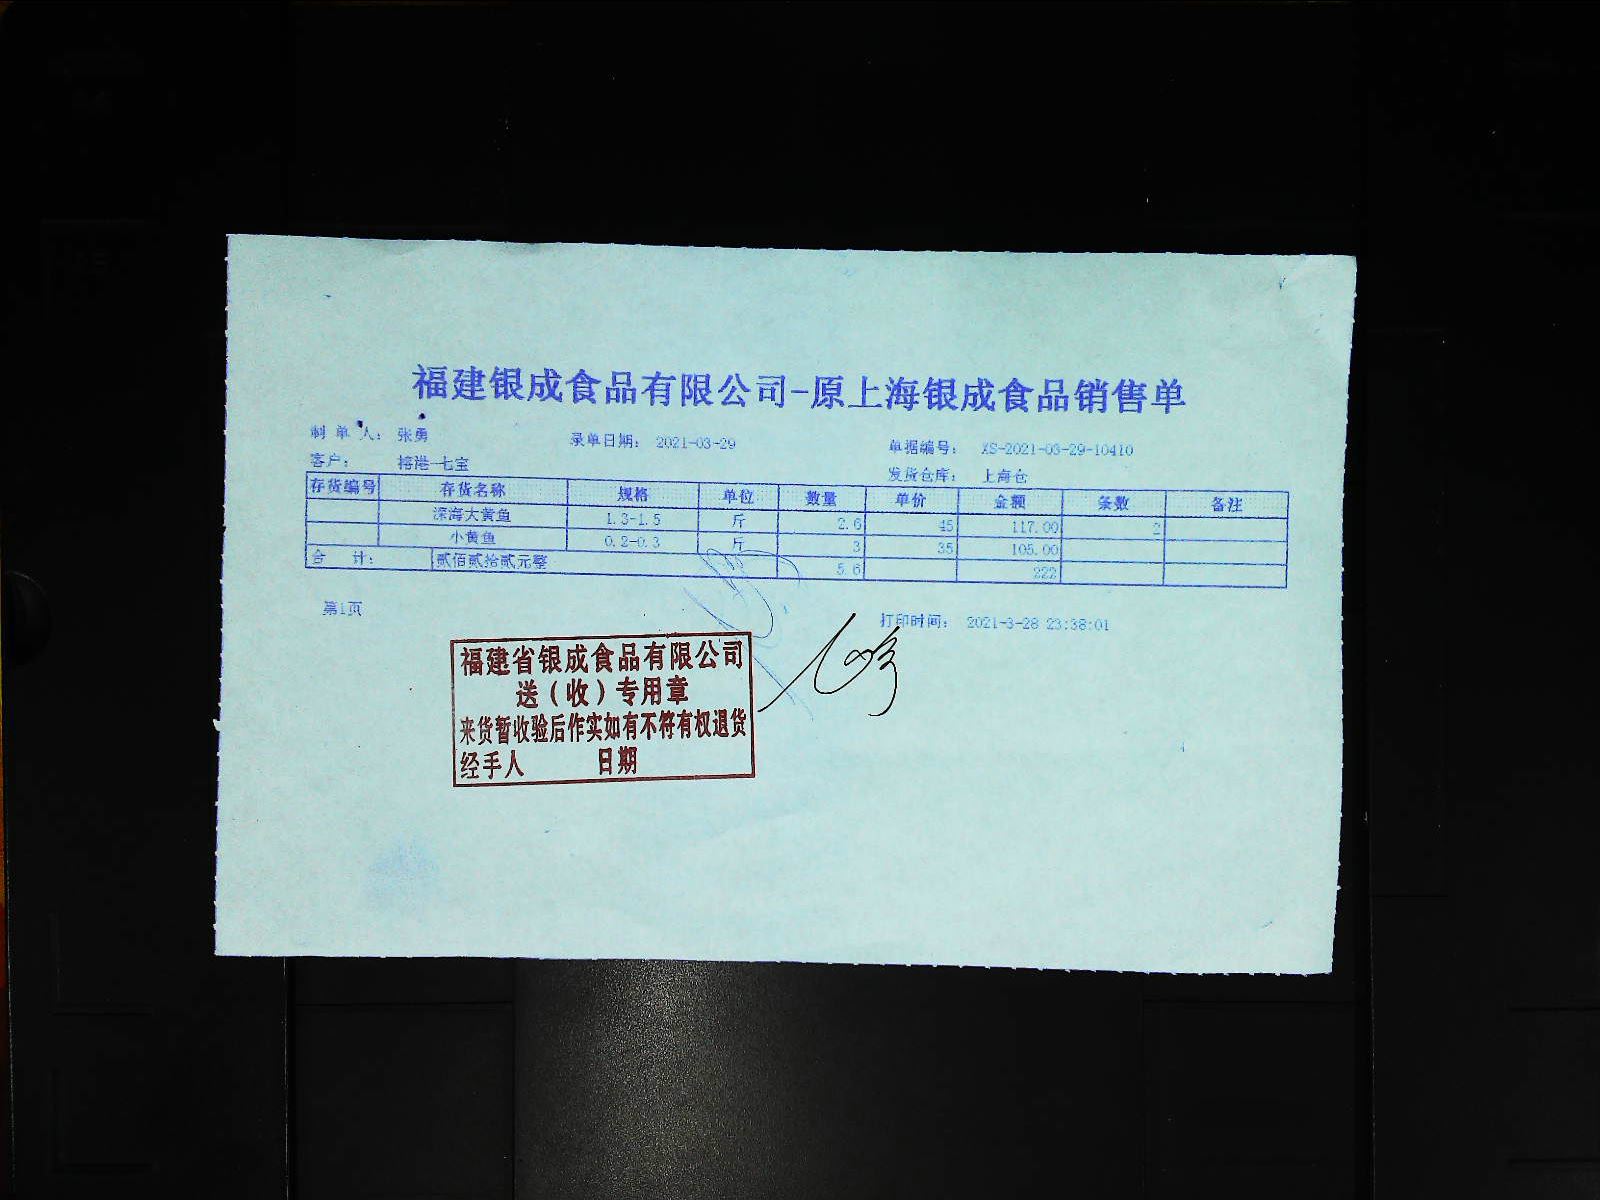 福建银成食品有限公司-原上海银成食品销售单
制 单 人： 张勇 录单日期： 2021-03-29 单据编号： XS-2021-03-29-10410
客户： 榕港-七宝 发货仓库： 上海仓
存货编号 存货名称 规格 单位 数量 单价 金额 条数 备注
深海大黄鱼 1.3-1.5 斤 2.6 45 117.00 2
小黄鱼 0.2-0.3 斤 3 35 105.00
合 计： 贰佰贰拾贰元整 5.6 222
第1页 打印时间： 2021-3-28 23:38:01
福建省银成食品有限公司
送（收）专用章
来货暂收验后作实如有不符有权退货
经手人 日期